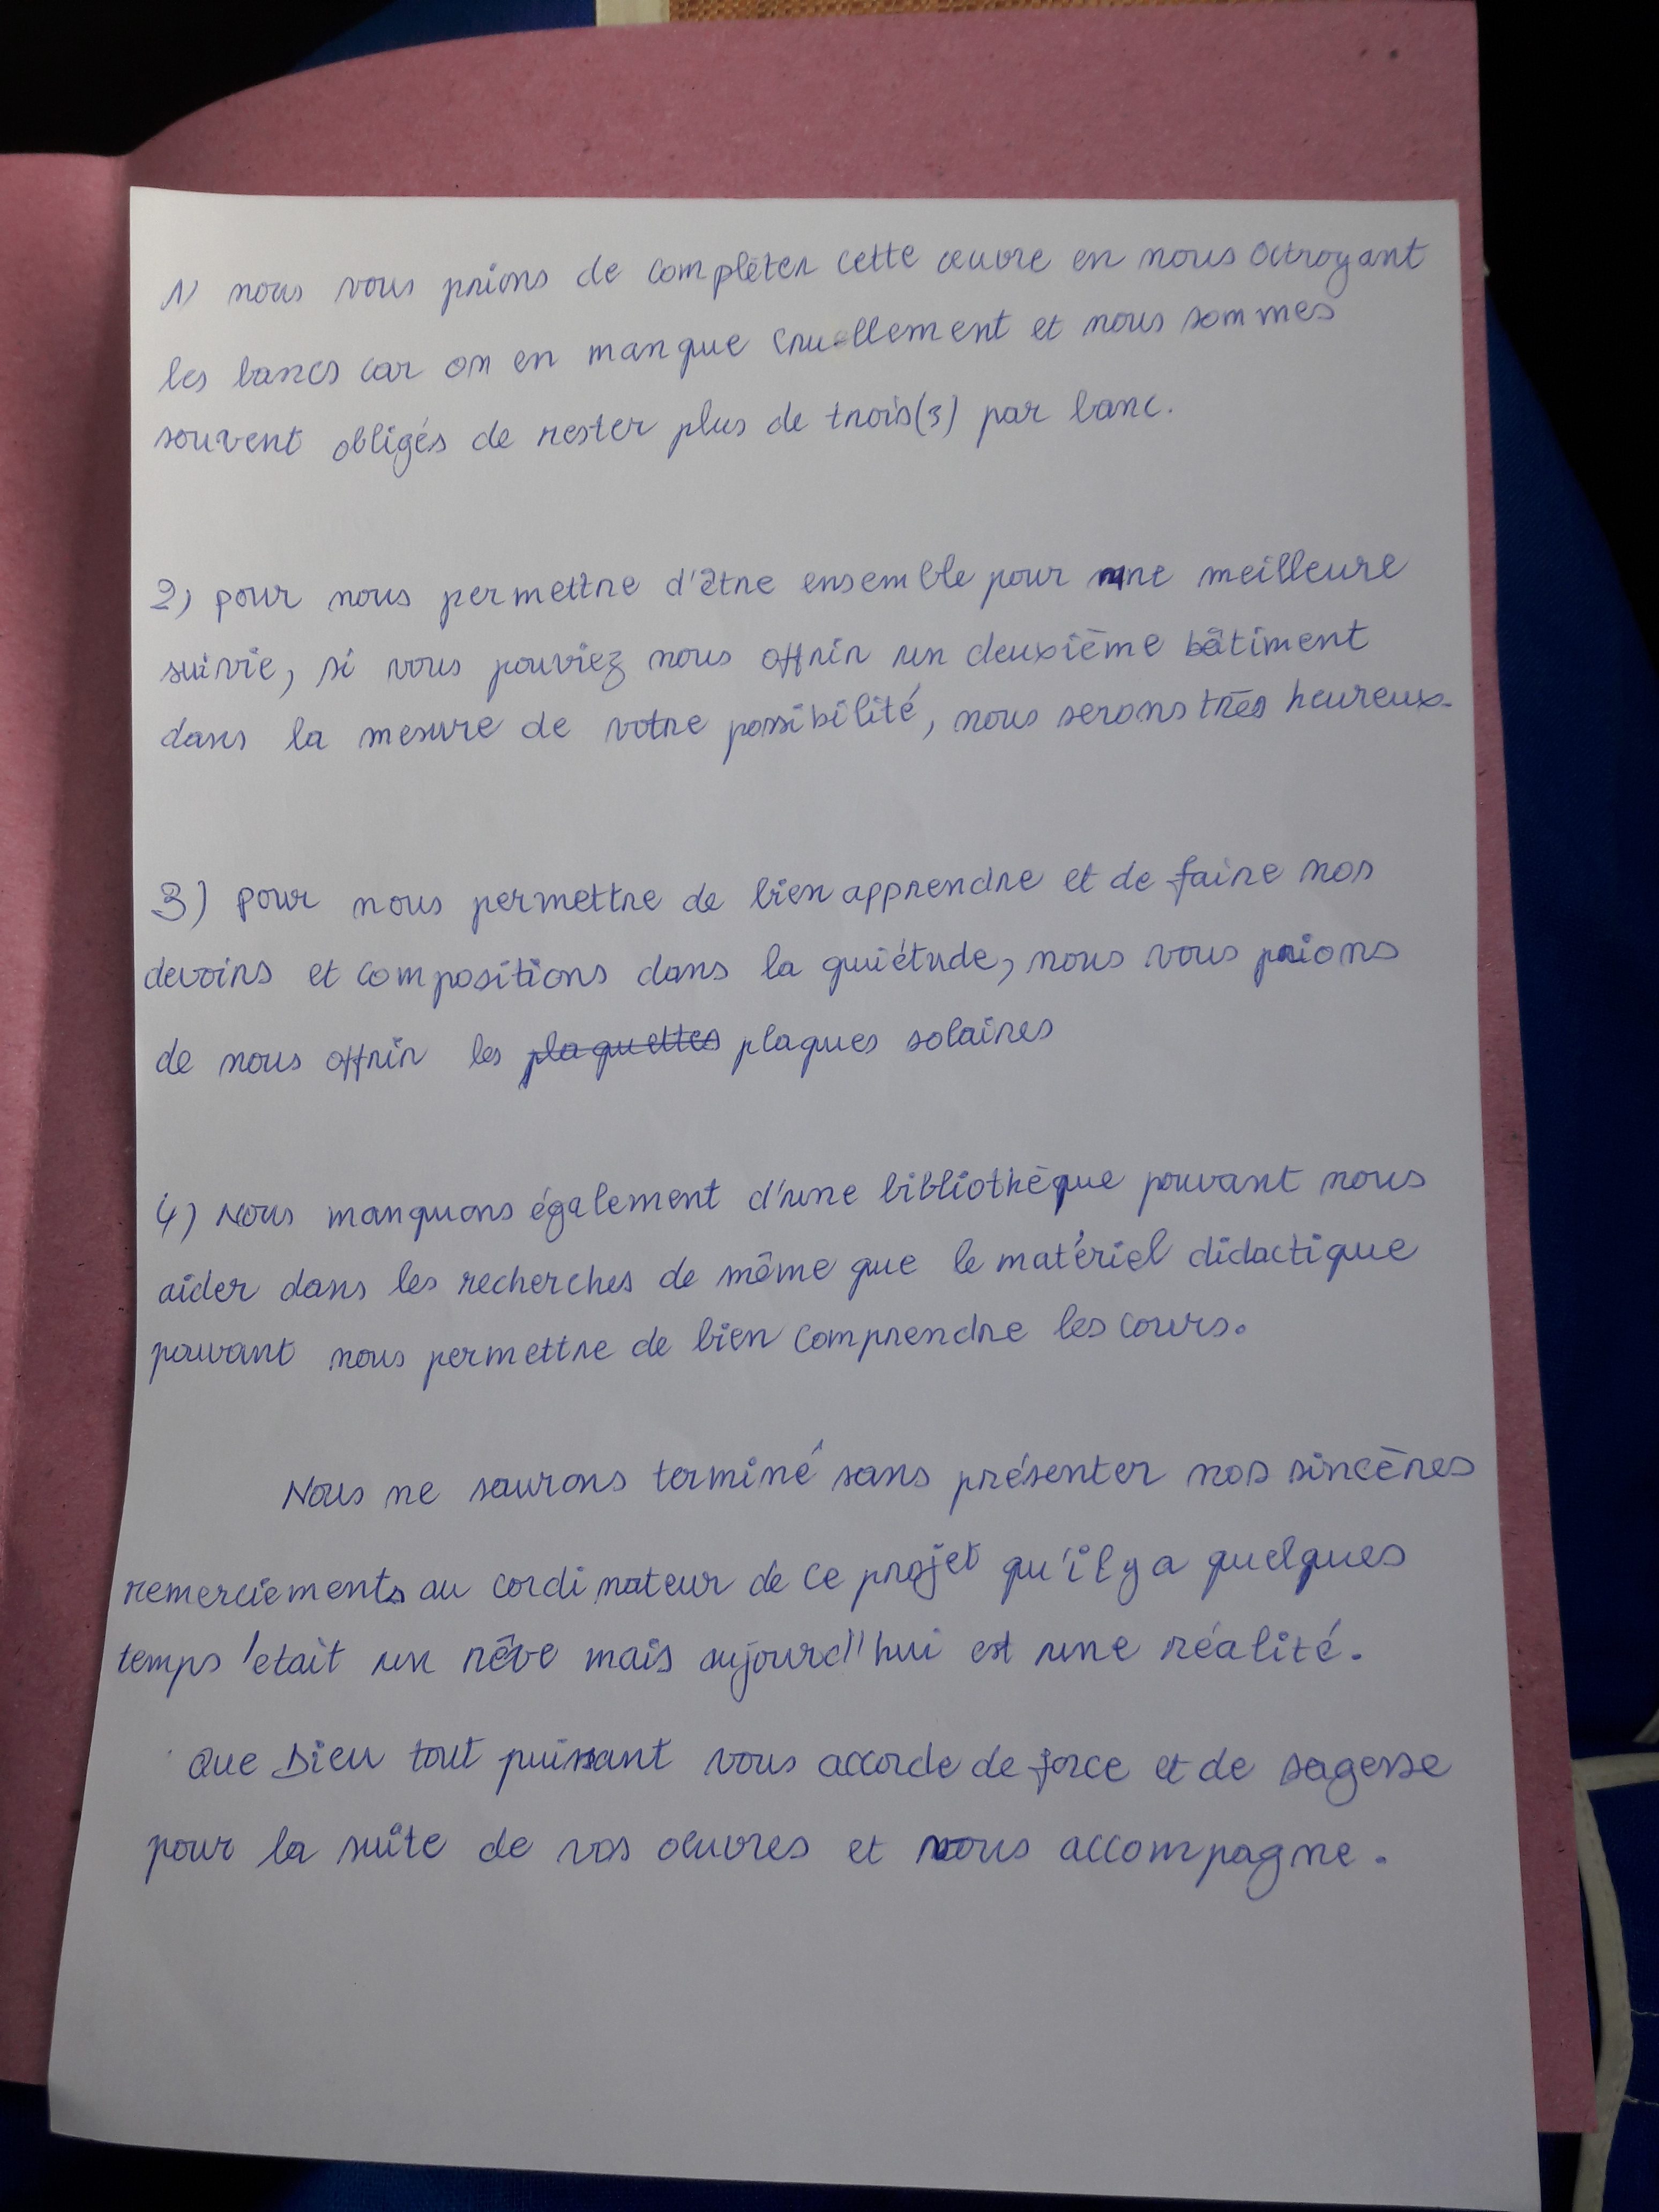 1) nous vous prions de compléter cette œuvre en nous octroyant
les bancs car on en manque cruellement et nous sommes
souvent obligés de rester plus de trois(3) par banc.
2) pour nous permettre d'être ensemble pour une meilleure
suivie, si vous pouviez nous offrir un deuxième bâtiment
dans la mesure de votre possibilité, nous serons très heureux.
3) pour nous permettre de bien apprendre et de faire nos
devoirs et compositions dans la quiétude, nous vous prions
de nous offrir les plaquettes plaques solaires
4) Nous manquons également d'une bibliothèque pouvant nous
aider dans les recherches de même que le matériel didactique
pouvant nous permettre de bien comprendre les cours.
Nous ne saurons terminé sans présenter nos sincères
remerciements au cordinateur de ce projet qu'il y a quelques
temps 'etait un rêve mais aujourd'hui est une réalité.
Que Dieu tout puissant vous accorde de force et de sagesse
pour la suite de vos œuvres et vous accompagne.